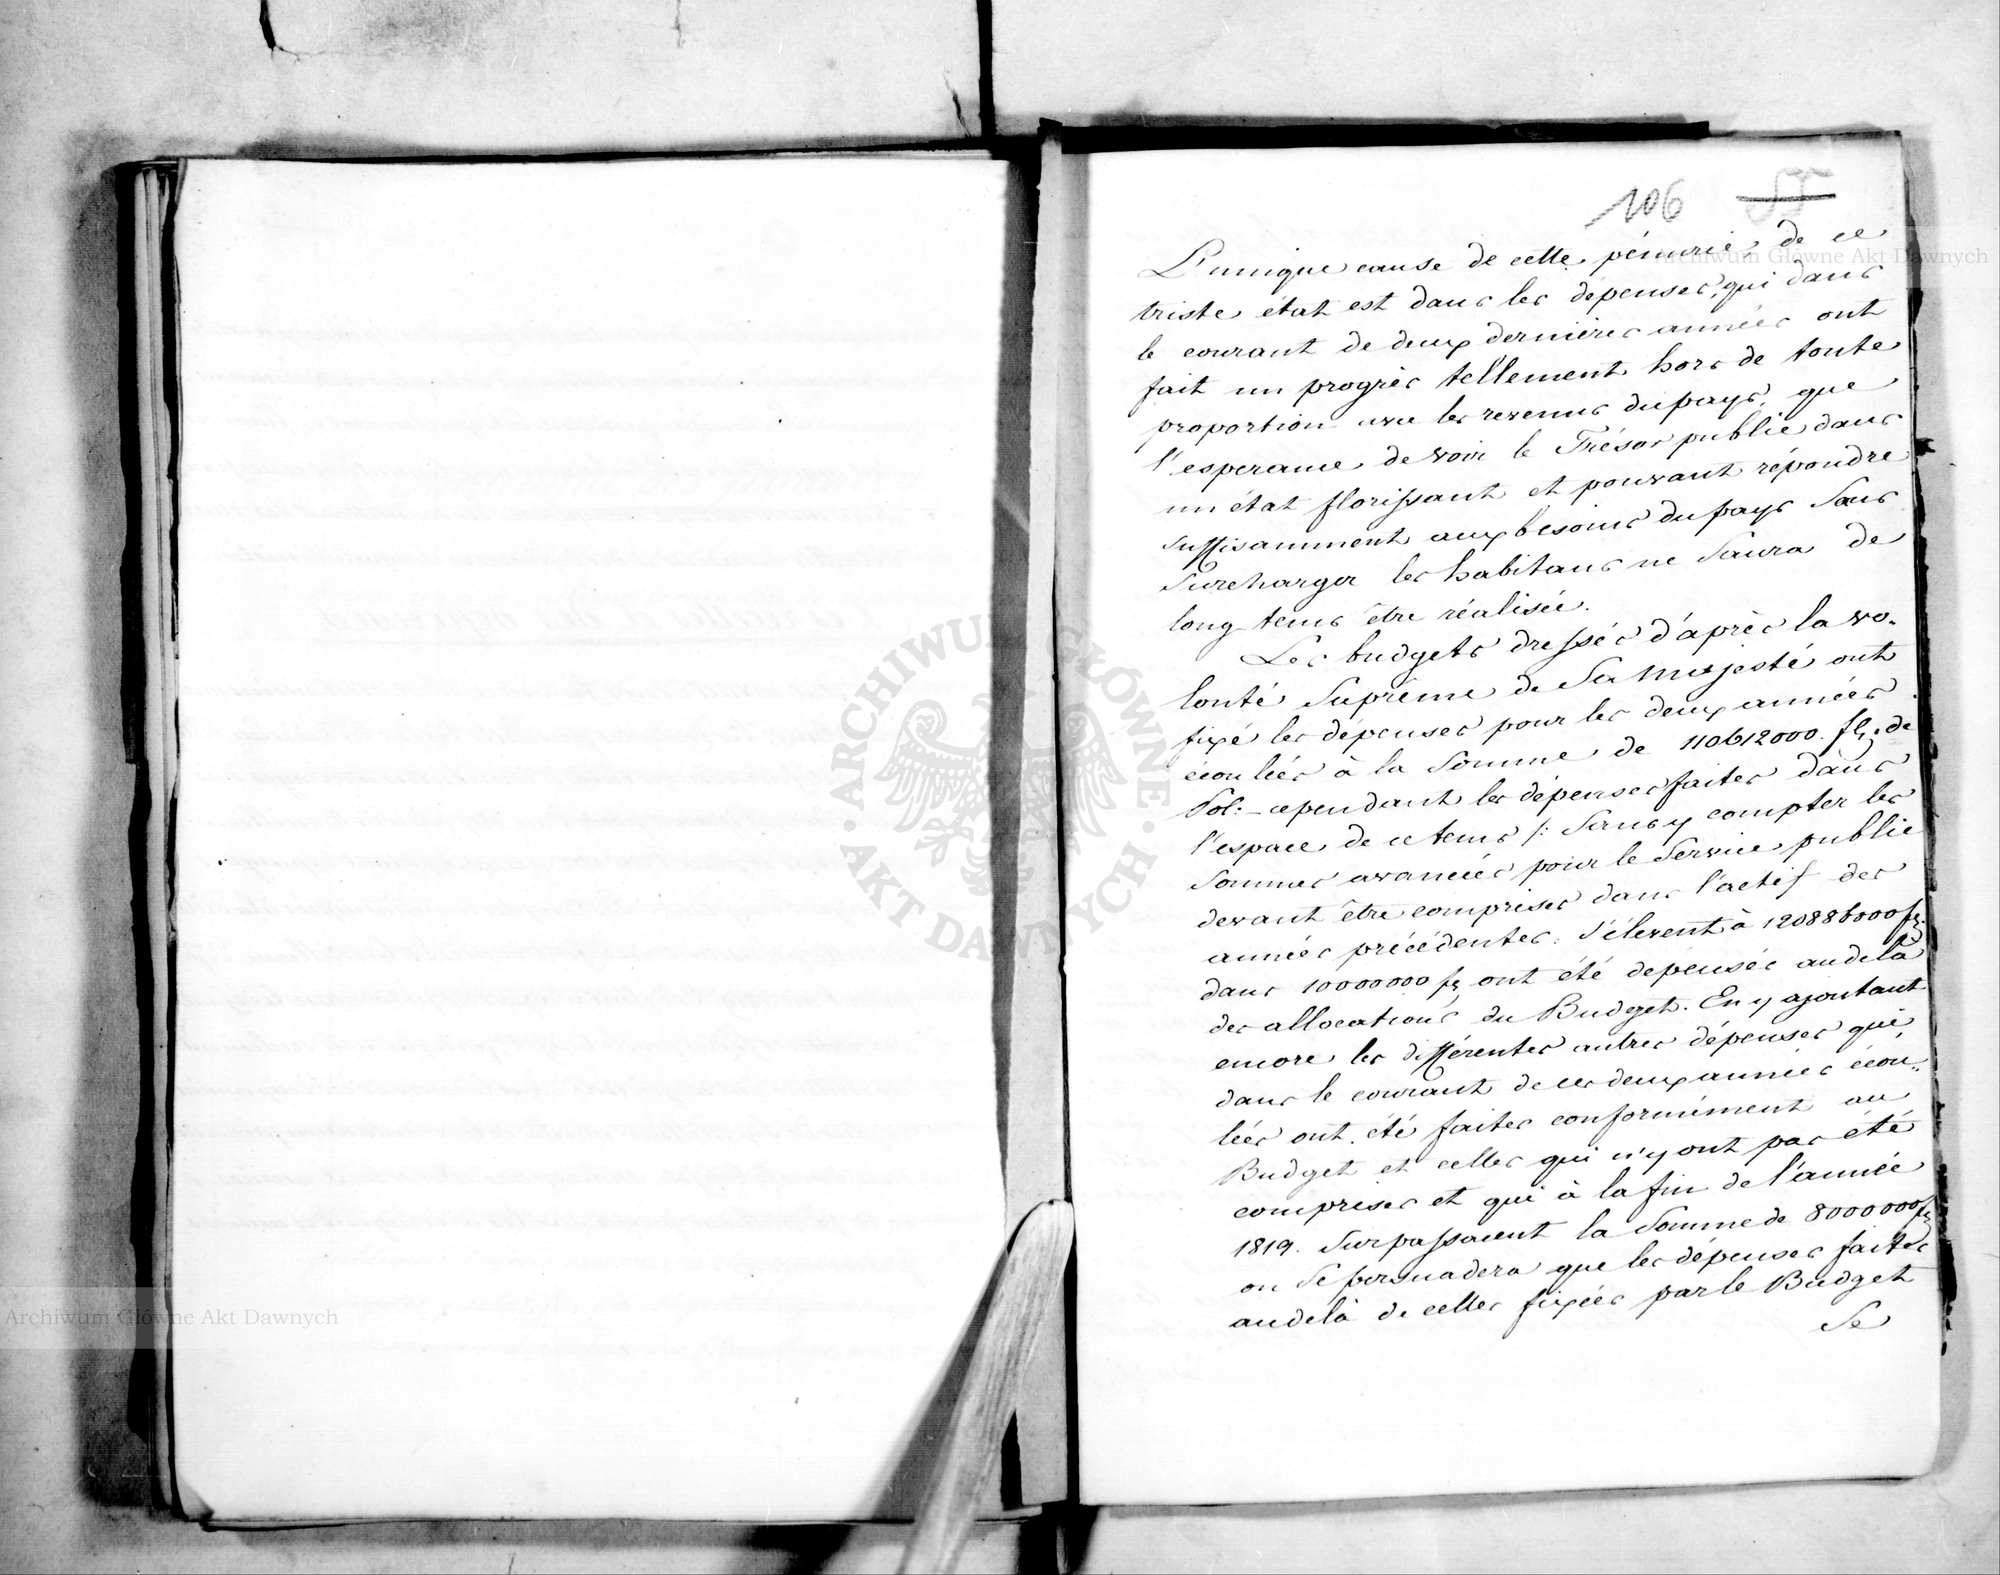 106 55
L'unique cause de cette pénurie, de ce
triste état est dans les dépenses, qui dans
le courant de deux dernières années ont
fait un progrès tellement hors de toute
proportion avec les revenus du pays, que
l'esperance de voir le Trésor public dans
un état florissant et pouvant répondre
suffisamment aux besoins du pays sans
surcharger les habitans ne saura de
long-tems être réalisée.
Les budgets dressés d'après la vo-
lonté suprème de Sa Majesté ont
fixé les dépenses pour les deux années
écoulées à la somme de 110612000. fl. de
Pol: - cependant les dépenses faites dans
l'espace de ce tems /: sans y compter les
sommes avancées pour le service public
devant être comprises dans l'actif des
années précédentes: s'élevent à 120886000 fl.
dans 10000000 fl ont été depensés audela
des allocations du Budget. En y ajoutant
encore les différentes autres dépenses qui,
dans le courant de ces deux années écou-
lées ont été faites conformément au
Budget et celles qui n'y ont pas été
comprises et qui à la fin de l'année
1819. surpassaient la somme de 8000000 fl
on se persuadera que les dépenses faites
audelà de celles fixées par le Budget
se
Archiwum Główne Akt Dawnych
ARCHIWUM GŁÓWNE
AKT DAWNYCH
Archiwum Główne Akt Dawnych